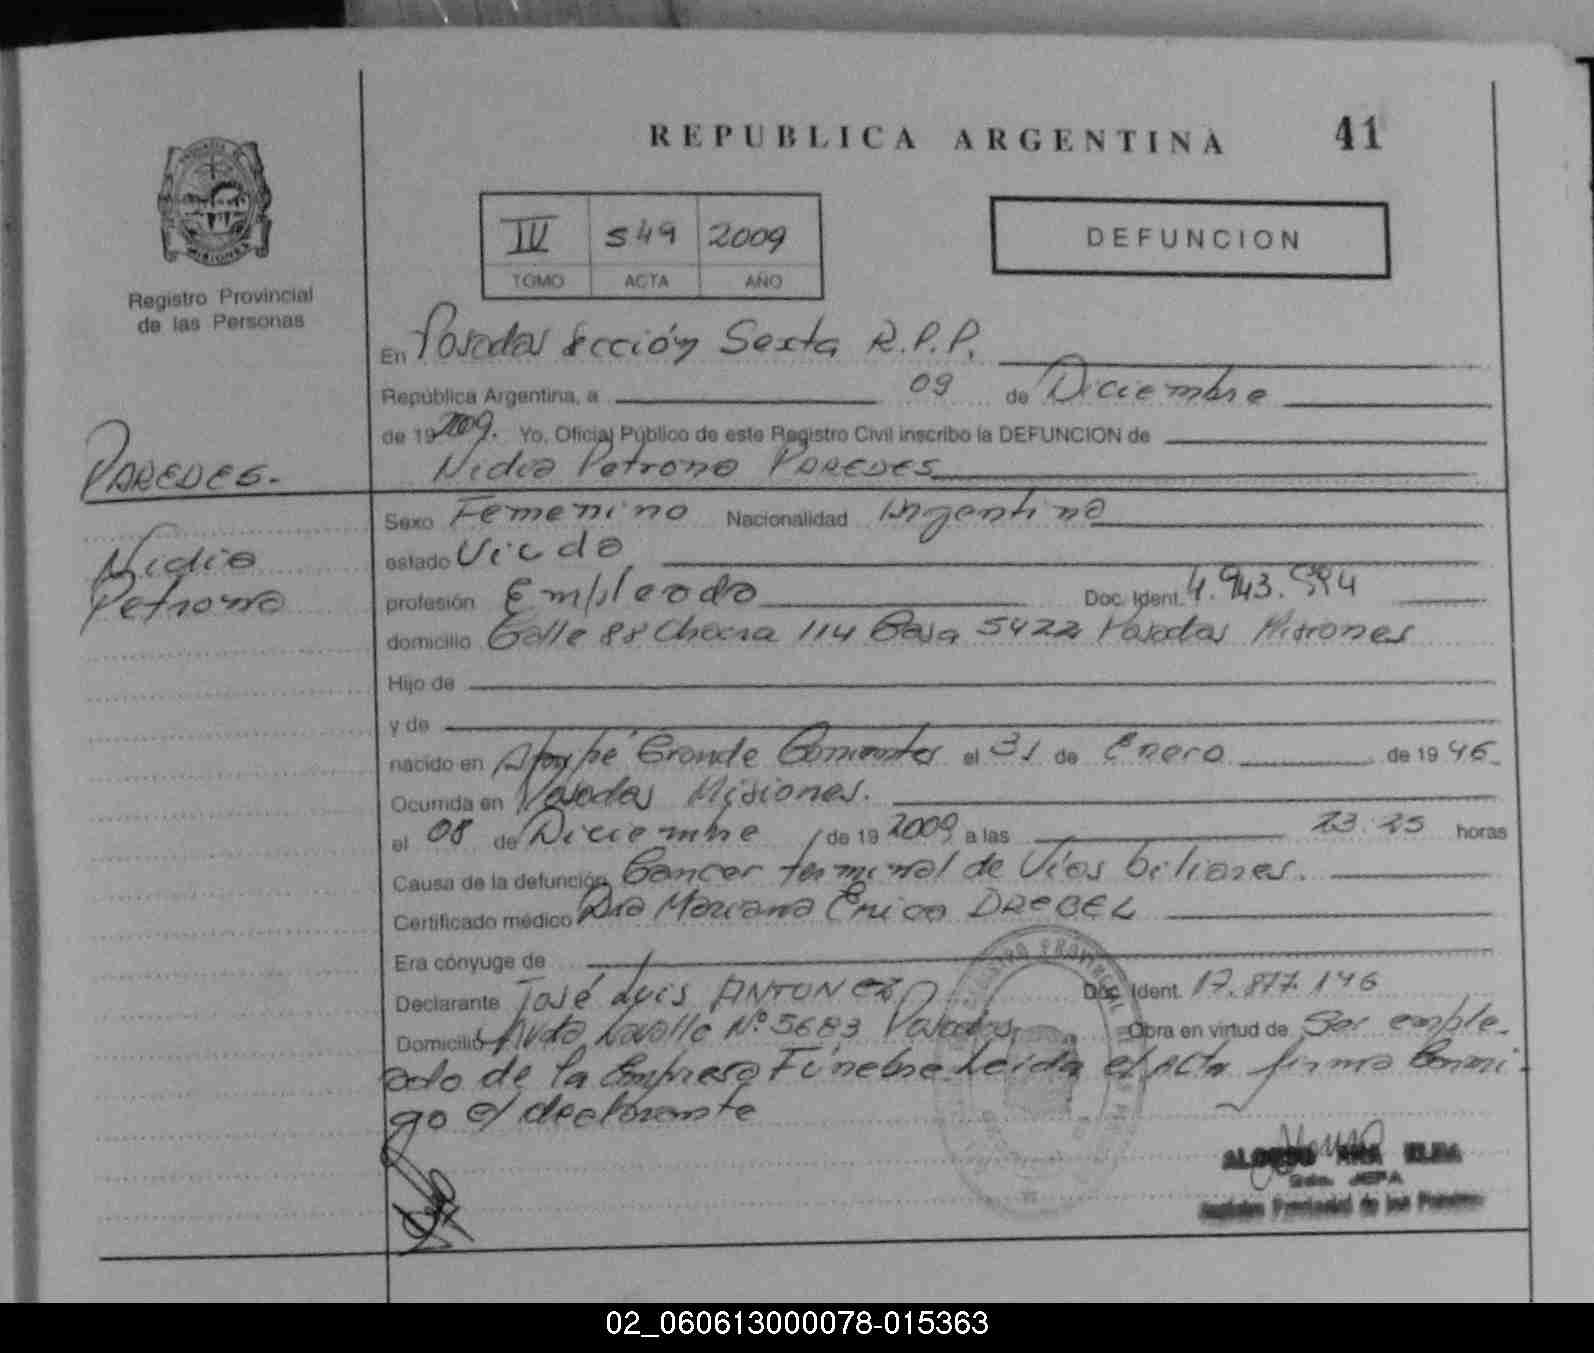 REPUBLICA ARGENTINA 41
IV 549 2009
TOMO ACTA AÑO
DEFUNCION
Registro Provincial
de las Personas
En Posadas Sección Sexta R.P.P.
República Argentina, a 09 de Diciembre
de 19 2009. Yo, Oficial Público de este Registro Civil inscribo la DEFUNCION de
Nidia Petrona PAREDES
PAREDES.
Nidia
Petrona
Sexo Femenino Nacionalidad Argentina
estado Viuda
profesión Empleada Doc. Ident. 4.943.
domicilio Calle 88 Chacra 114 Casa 5422 Posadas Misiones
Hijo de
y de
nacido en Grande Corrientes el 31 de Enero de 19 46.
Ocurrida en Posadas Misiones.
el 08 de Diciembre de 19 2009 a las 23:25 horas
Causa de la defunción Cancer terminal de Vías biliares.
Certificado médico Dra Mariana Erica DREBEL
Era cónyuge de
Declarante José Luis ANTUNEZ Doc. Ident. 17.877.146
Domicilio Avda Lavalle Nº 5683 Posadas Obra en virtud de Ser emple-
ado de la Empresa Fúnebre Leida el Acta firma Conmi-
go el declarante
ALONSO ANA ELBA
JEFA
Registro Provincial de las Personas
02_060613000078-015363